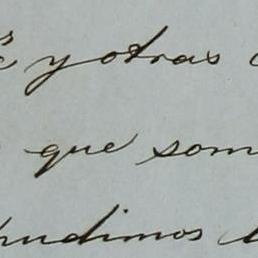 y otras
que som
pudimos